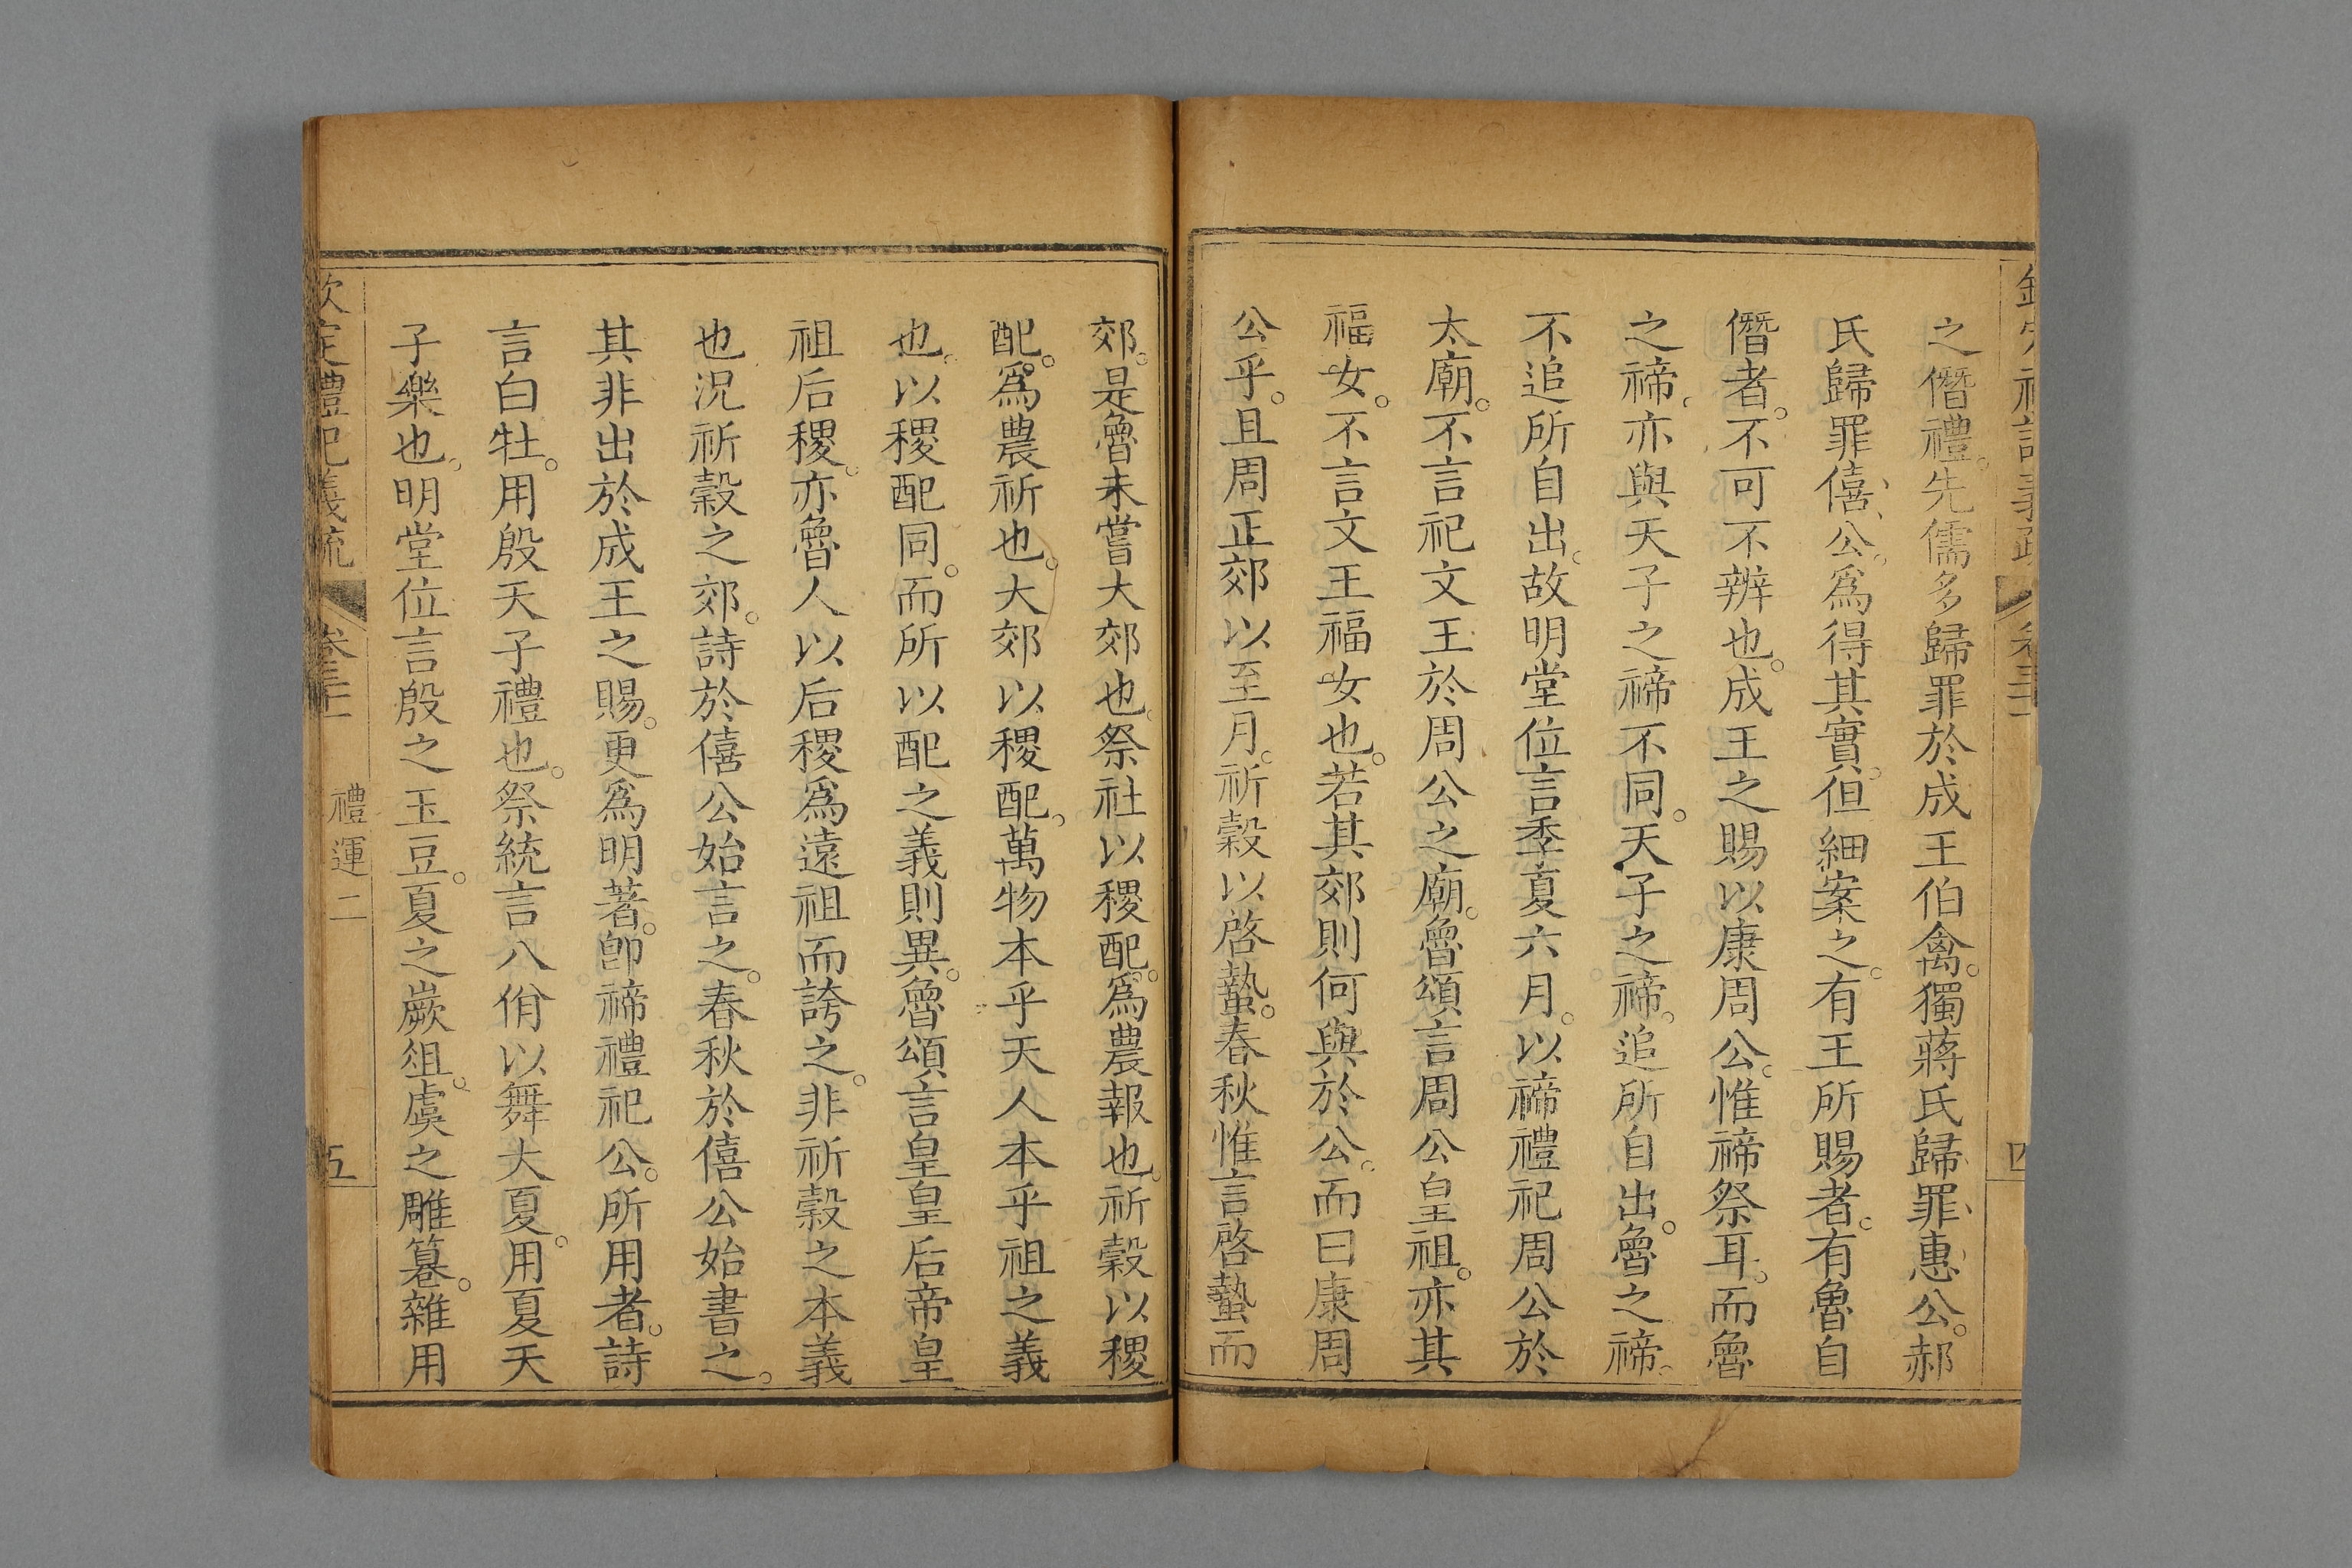 之僭禮。先儒多歸罪於成王伯禽。獨蔣氏歸罪惠公。郝
氏歸罪僖公。爲得其實。但細案之。有王所賜者。有魯自
僭者。不可不辨也。成王之賜以康周公。惟禘祭耳。而魯
之禘。亦與天子之禘不同。天子之禘。追所自出。魯之禘。
不追所自出。故明堂位言季夏六月。以禘禮祀周公於
太廟。不言祀文王於周公之廟。魯頌言周公皇祖。亦其
福女。不言文王福女也。若其郊則何與於公。而曰康周
公乎。且周正郊以至月。祈穀以啓蟄。春秋惟言啓蟄而
郊。是魯未嘗大郊也。祭社以稷配。爲農報也。祈穀以稷
配。爲農祈也。大郊以稷配。萬物本乎天人本乎祖之義
也。以稷配同。而所以配之義則異。魯頌言皇皇后帝皇
祖后稷。亦魯人以后稷爲遠祖而誇之。非祈穀之本義
也況祈穀之郊。詩於僖公始言之。春秋於僖公始書之。
其非出於成王之賜。更爲明著。卽禘禮祀公。所用者。詩
言白牡。用殷天子禮也。祭統言八佾以舞大夏。用夏天
子樂也。明堂位言殷之玉豆。夏之嶡俎。虞之雕篹。雜用
欽定禮記義疏
卷三十一
禮運二
五